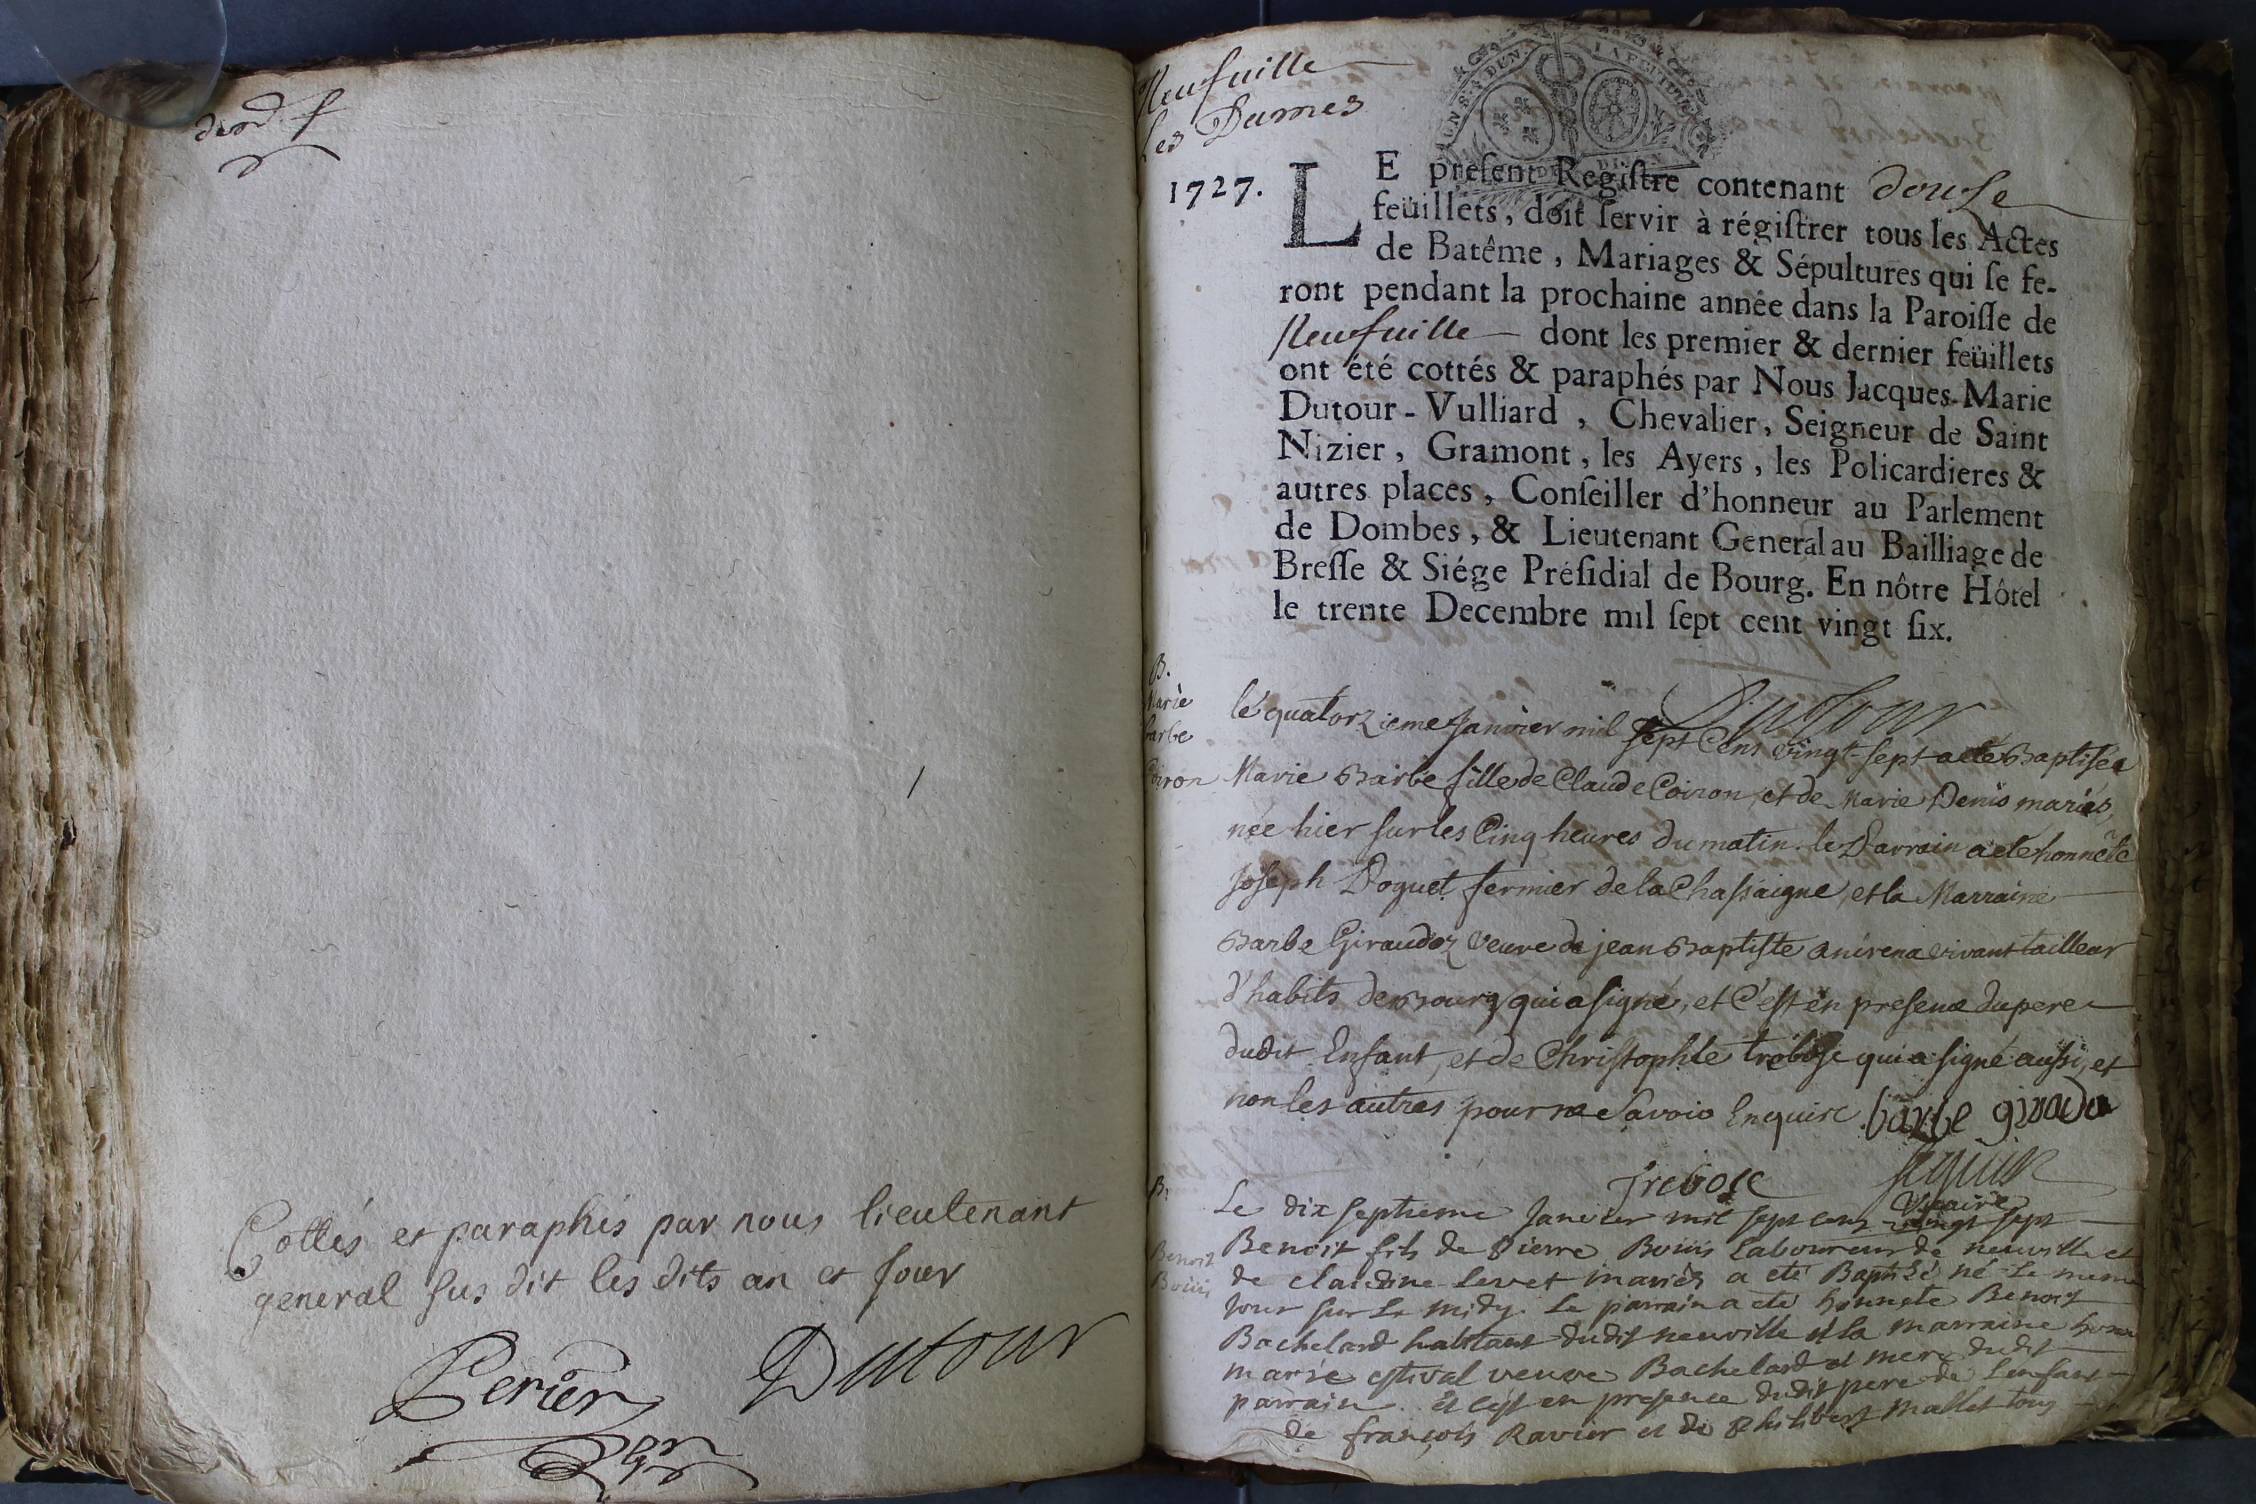 Cottés et paraphés par nous lieutenant
general sus dit les dits an et jour
Perier Dutour
Neufuille
Les Dames
1727.
LE preſent Regiſtre contenant douſe
feüillets, doit ſervir à régiſtrer tous les Actes
de Batême, Mariages & Sépultures qui ſe fe-
ront pendant la prochaine année dans la Paroiſſe de
Neufuille dont les premier & dernier feüillets
ont été cottés & paraphés par Nous Jacques-Marie
Dutour-Vulliard, Chevalier, Seigneur de Saint
Nizier, Gramont, les Ayers, les Policardieres &
autres places, Conſeiller d'honneur au Parlement
de Dombes, & Lieutenant General au Bailliage de
Breſſe & Siége Préſidial de Bourg. En nôtre Hôtel
le trente Decembre mil ſept cent vingt ſix.
Dutour
B.
Marie
barbe
Coiron
le quatorzieme Janvier mil sept Cens vingt-sept a eté Baptisée
Marie Barbe fille de Claude Coiron, et de Marie Denis mariés,
née hier sur les Cinq heures du matin. le Parrain a eté honnête
Joseph Poguet fermier de la Chassaigne, et la Marraine
Barbe Giraudoz veuve de jean Baptiste vivant tailleur
d'habits de Bourg qui a signé, et C'est en presence du pere
dudit Enfant, et de Christophle trebose qui a signé aussi, et
non les autres pour ne Savoir Enquire barbe girado
Trebose
Vicaire
B.
Benoit
Bouis
Le dix septieme Janvier mil sept cens vingt sept
Benoit fils de Pierre Bouis Laboureur de neuville et
de claudine Levet mariés a eté Baptisé né Le meme
jour sur Le midy. Le parrain a eté honnete Benoit
Bachelard habitant dudit neuville et la marraine
marie estival veuve Bachelard et mere dudit
parrain. Et c'est en presence dudit pere de L'enfant
de françois Ravier et de Philibert Mallet tous